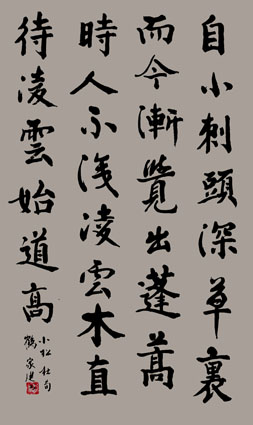 自小刺頭深草裏
而今漸覺出蓬蒿
時人不識凌雲木直
待凌雲始道高
小松 杜句